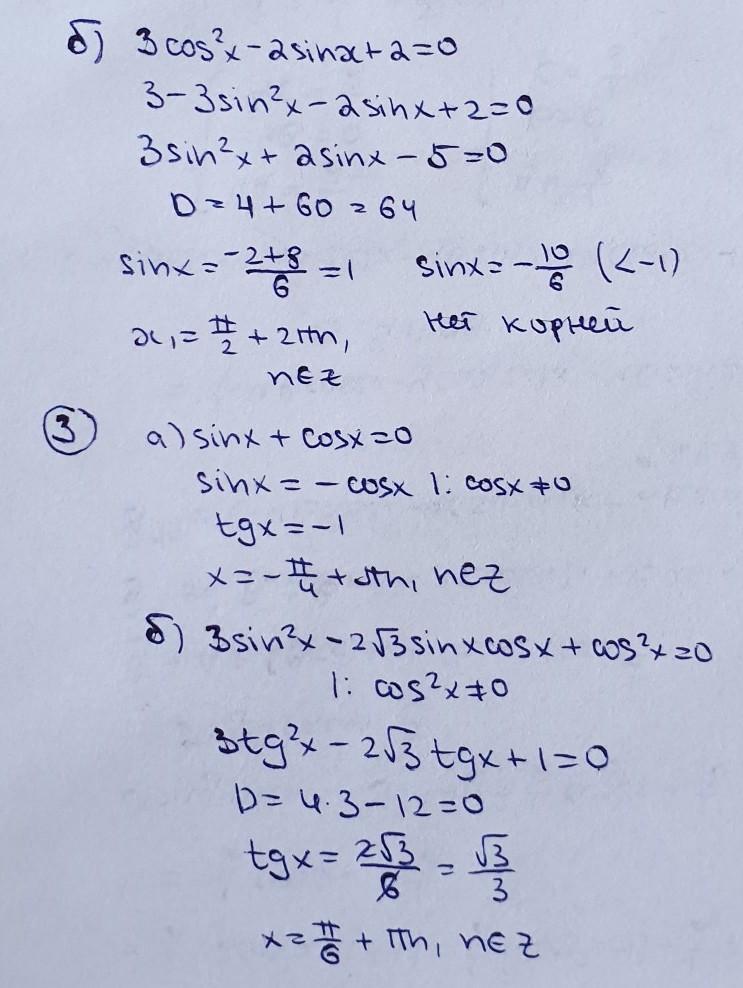 б) 3cos²x - 2sinx + 2 = 0
3 - 3sin²x - 2sinx + 2 = 0
3sin²x + 2sinx - 5 = 0
D = 4 + 60 = 64
sinx = (-2+8)/6 = 1 sinx = -10/6 (< -1)
x₁ = π/2 + 2πn, нет корней
n∈Z
3 а) sinx + cosx = 0
sinx = - cosx |: cosx ≠ 0
tgx = -1
x = -π/4 + πn, n∈Z
б) 3sin²x - 2√3 sinx cosx + cos²x = 0
|: cos²x ≠ 0
3tg²x - 2√3 tgx + 1 = 0
D = 4·3 - 12 = 0
tgx = 2√3/6 = √3/3
x = π/6 + πn, n∈Z